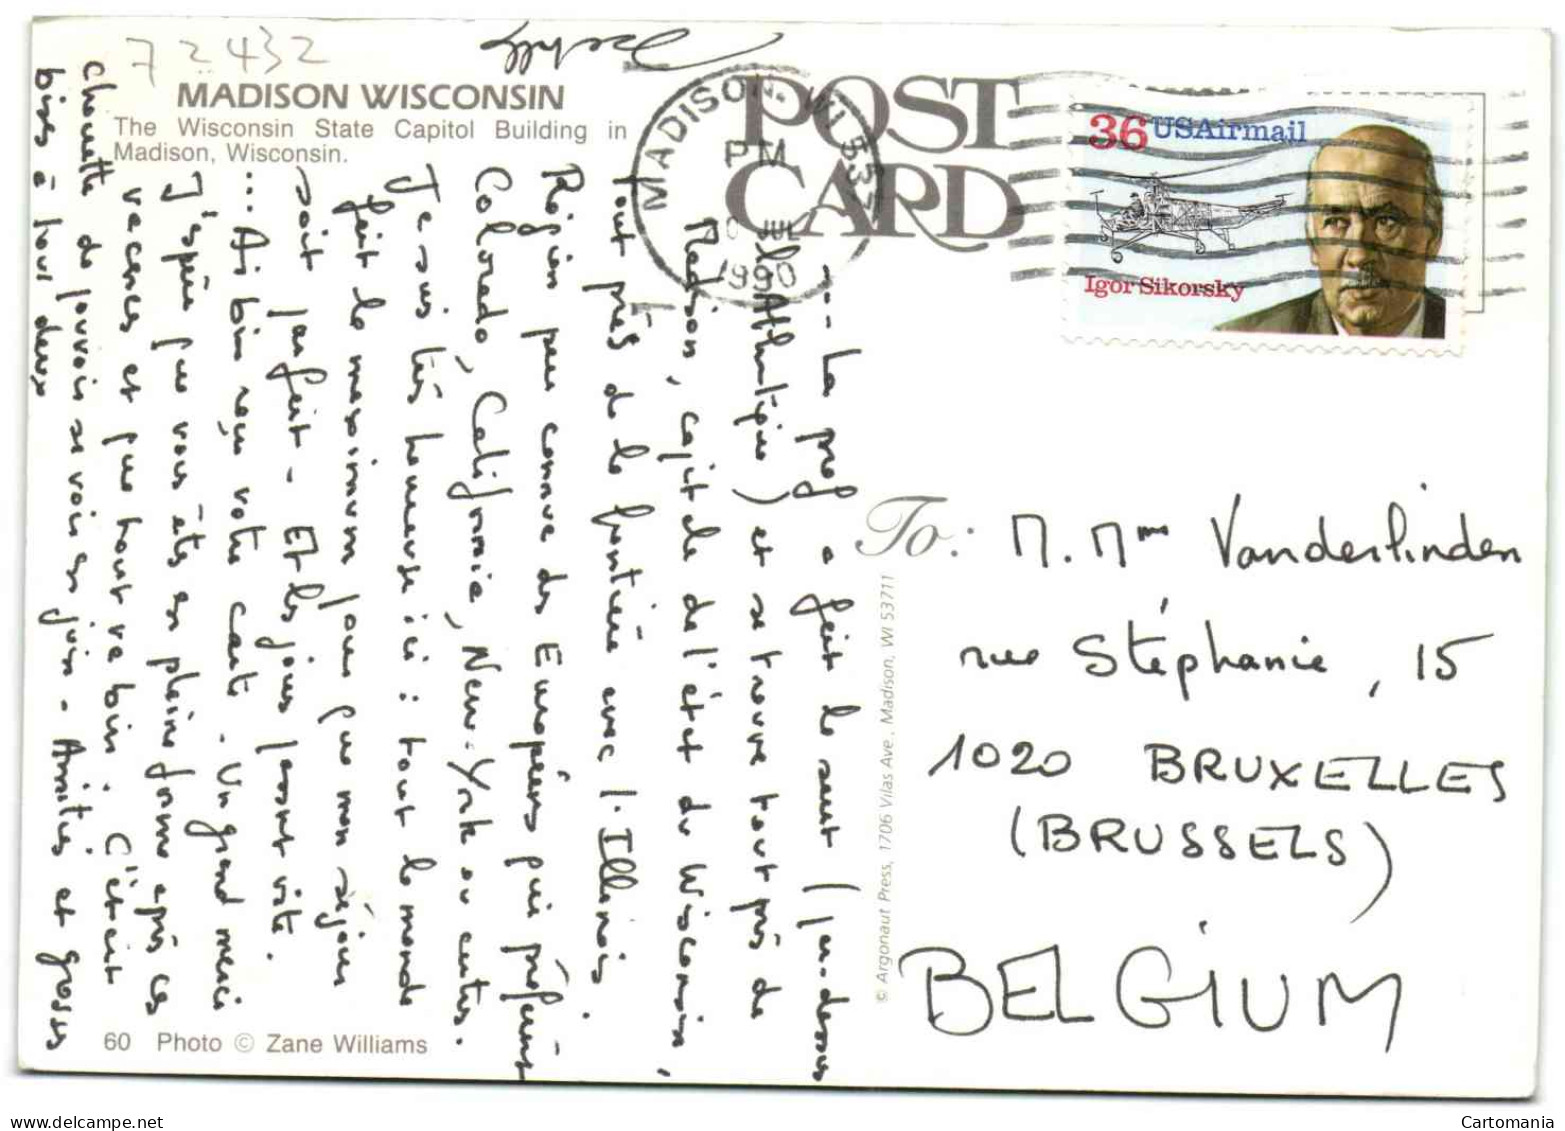 72432
MADISON WISCONSIN
The Wisconsin State Capitol Building in
Madison, Wisconsin.
POST
CARD
MADISON, WI 537
PM
1990
36 USAirmail
Igor Sikorsky
... La prof a fait le saut (par-dessus
l'Atlantique) et se trouve tout près de
Madison, capitale de l'état du Wisconsin,
tout près de la frontière avec l'Illinois
Région peu connue des Européens qui préfèrent
Colorado, Californie, New-York ou autres.
Je suis très heureuse ici : tout le monde
fait le maximum pour que mon séjour
soit parfait - Et les jours passent vite.
... Ai bien reçu votre carte. Un grand merci
J'espère que vous êtes en pleine forme après ces
vacances et que tout va bien. C'était
chouette de pouvoir se voir en juin - Amitiés et grosses
bises à tous deux
To: M. Mme Vanderlinden
rue Stéphanie, 15
1020 BRUXELLES
(BRUSSELS)
BELGIUM
© Argonaut Press, 1706 Vilas Ave., Madison, WI 53711
60 Photo © Zane Williams
Cartomania